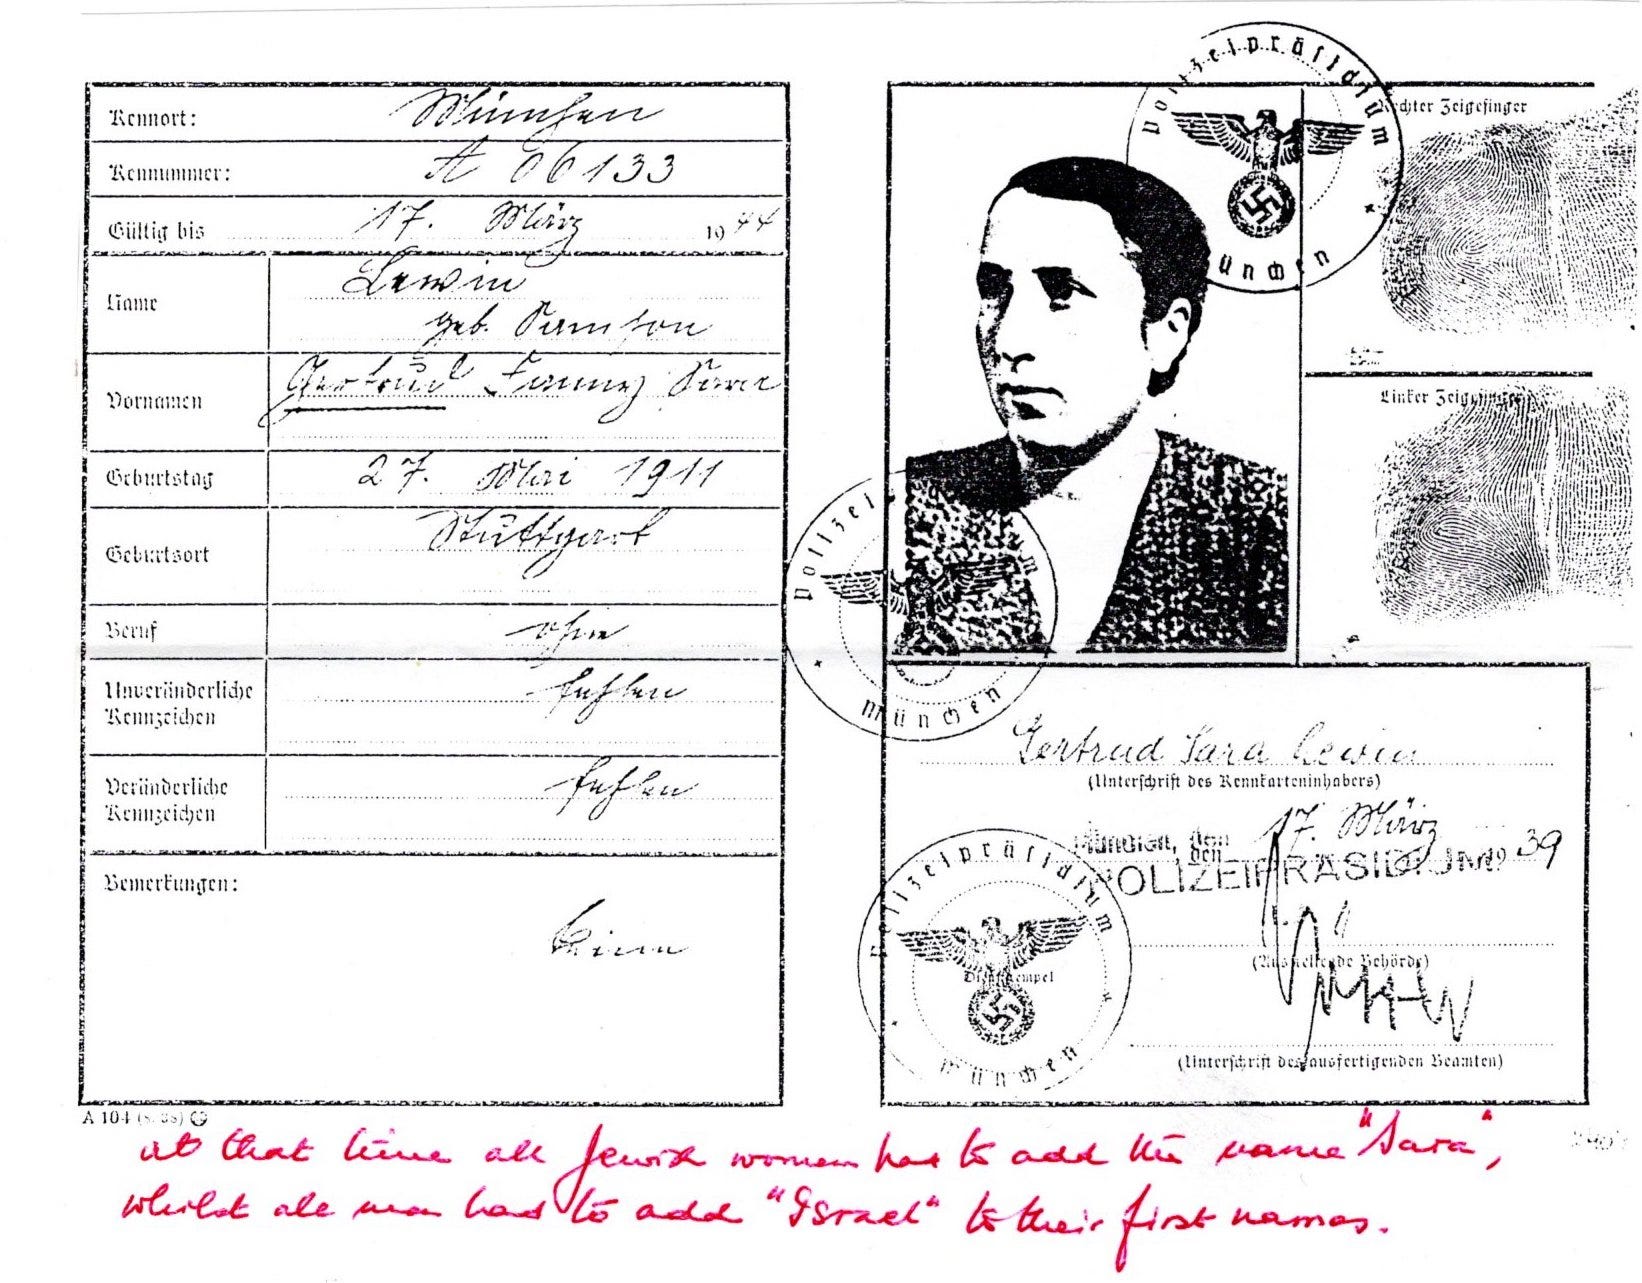 Kennort: München
Kennummer: A 06133
Gültig bis 17. März 1944
Name Lewin
geb. Samson
Vornamen Gertrud Fanny Sara
Geburtstag 27. Mai 1911
Geburtsort Stuttgart
Beruf ohne
Unveränderliche
Kennzeichen fehlen
Veränderliche
Kennzeichen fehlen
Bemerkungen:
Keine
A 104
Polizeipräsidium
München
Rechter Zeigefinger
Linker Zeigefinger
Polizei
München
Gertrud Sara Lewin
(Unterschrift des Kennkarteninhabers)
München, den 17. März 1939
POLIZEIPRÄSIDIUM
(Ausstellende Behörde)
Polizeipräsidium
Dienststempel
München
(Unterschrift des ausfertigenden Beamten)
at that time all Jewish women had to add the name "Sara",
whilst all men had to add "Israel" to their first names.